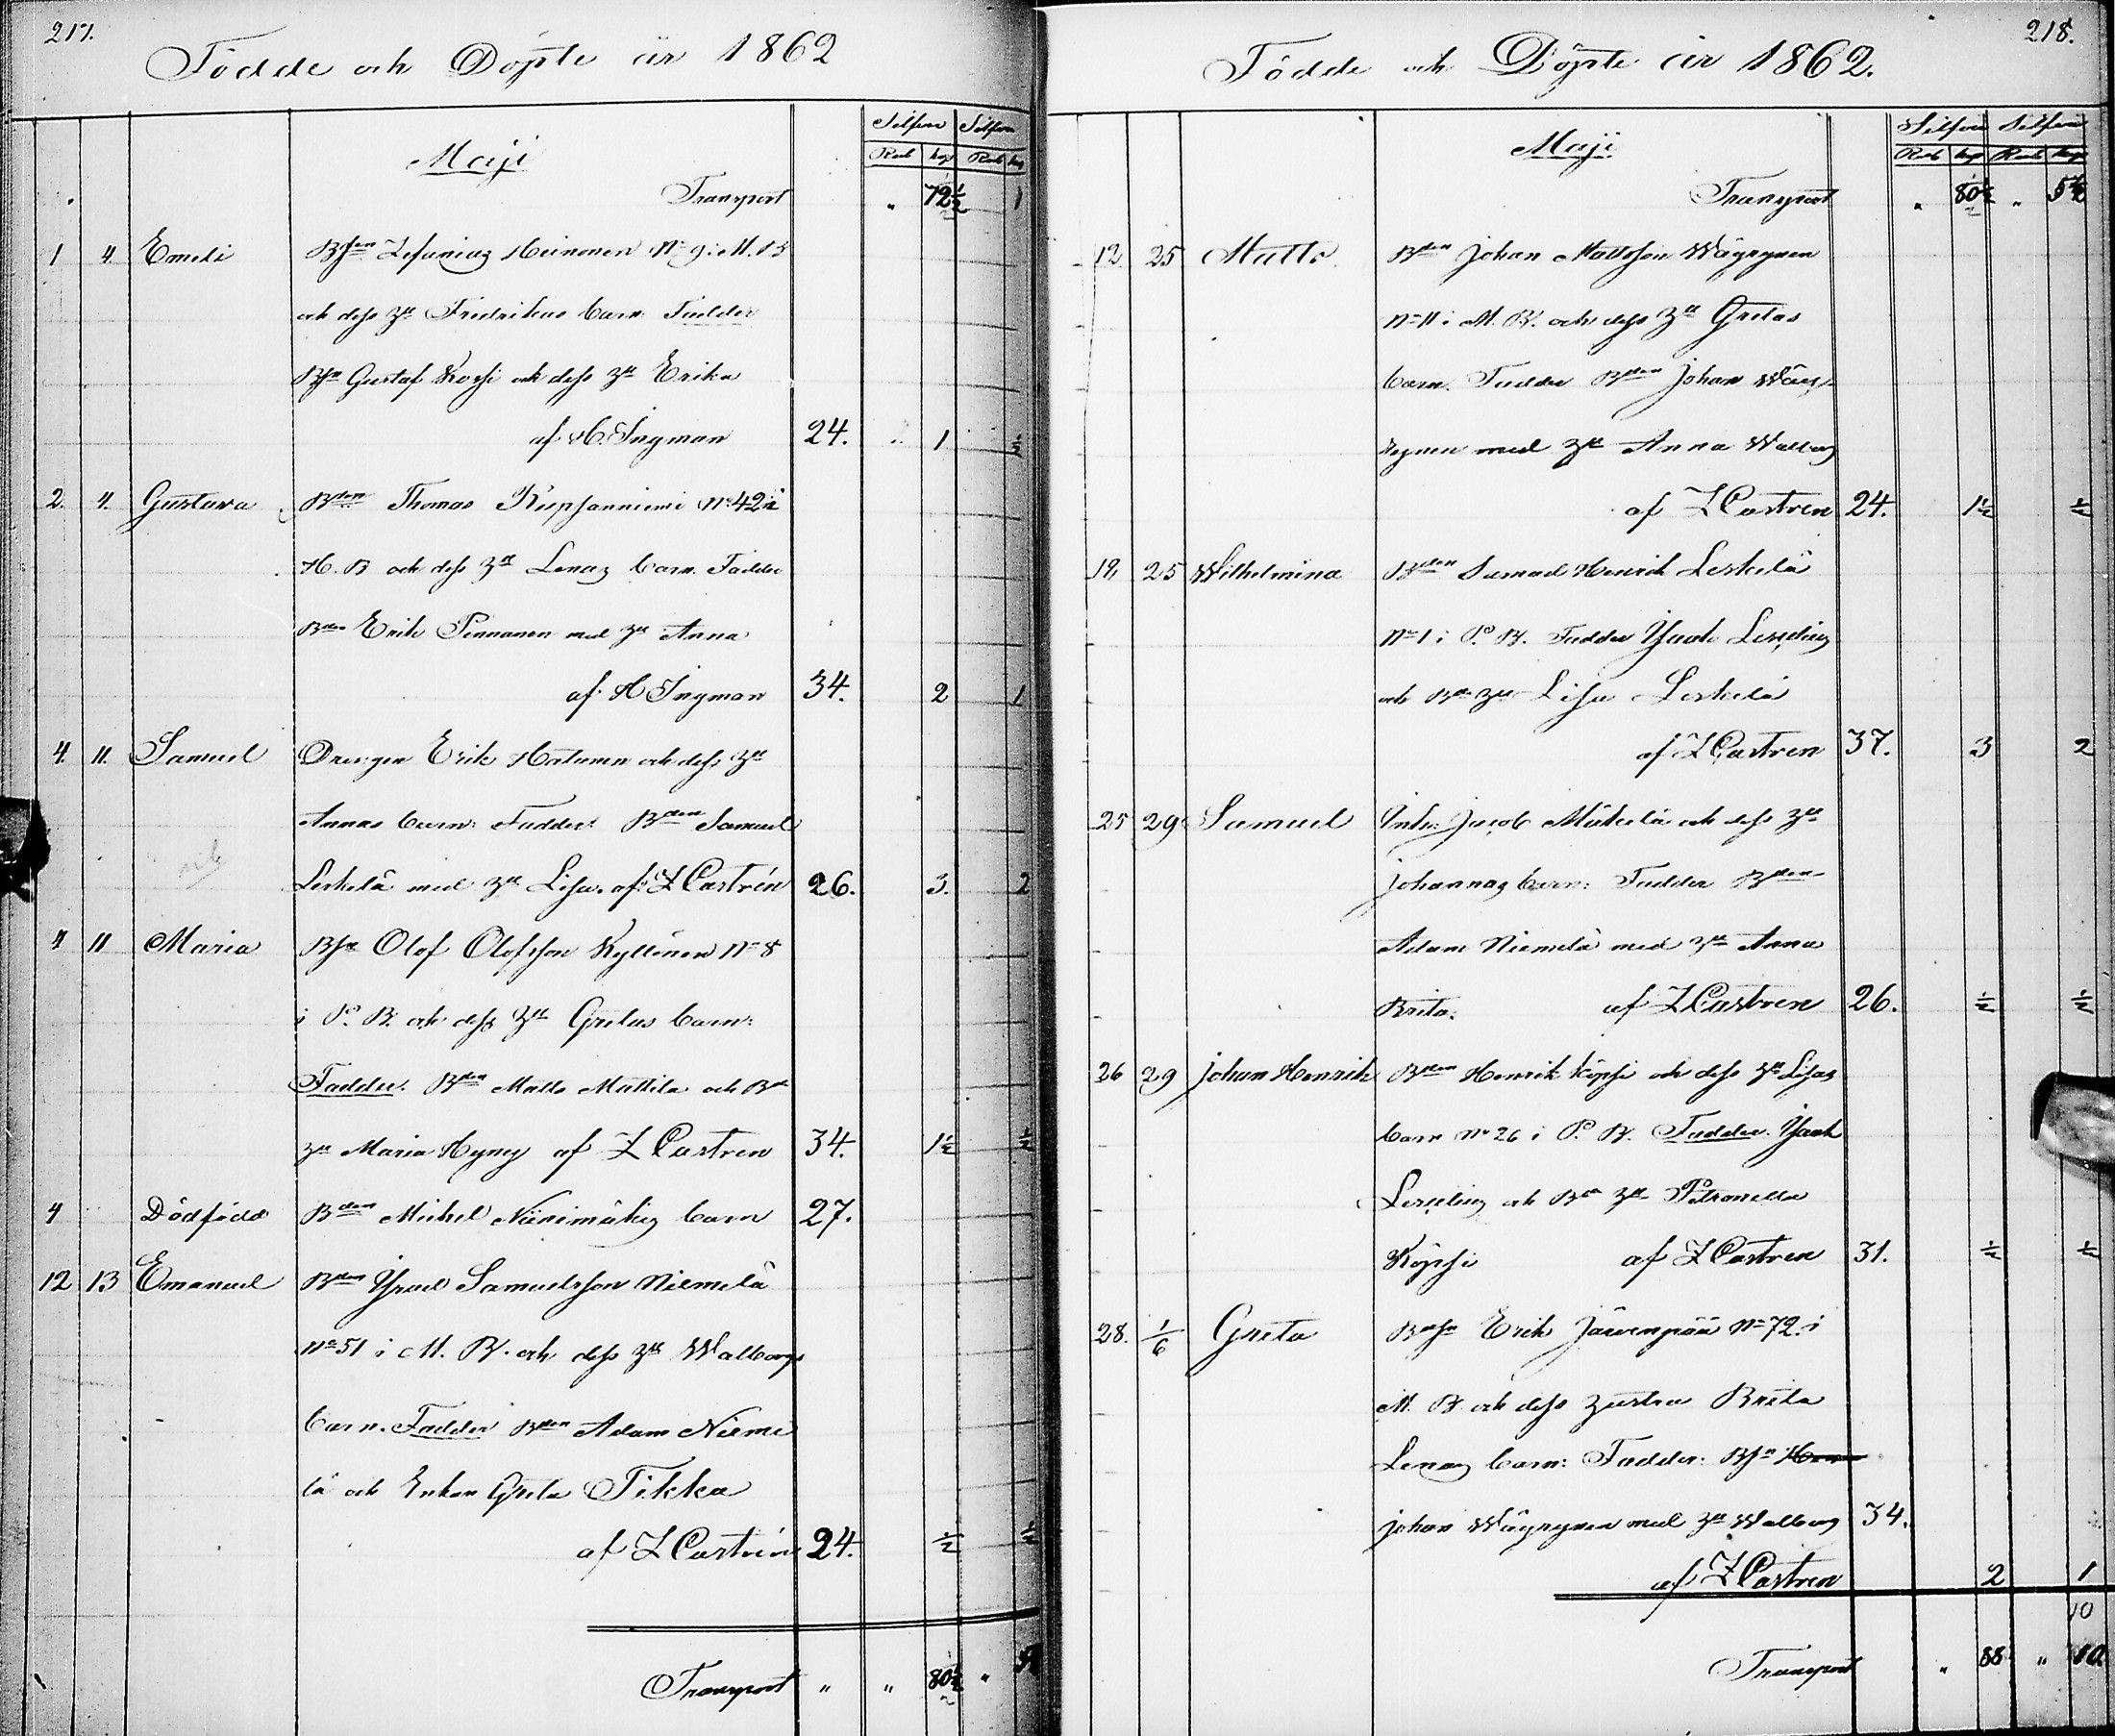 217.
Födde och Döpte år 1862
Silfver Silfver
Rub kop Rub kop
Maji
Transport " 72½ 1
1 4. Emeli Bssn Zefanias Heinonen No 9 i M. B
och dess Hu Fredrikas barn Fadder
Bssn Gustaf Kovsi och dess Hu Erika
af H. Ingman 24. " 1 ½
2. 4. Gustava Bden Thomas No 42 i
H. B och dess Hu Lenas barn. Fadder
Bden Erik Pennanen med Hu Anna
af H Ingman 34. 2 1
4. 11. Samuel Drengen Erik Hatunen och dess Hu
Annas barn: Fadder: Bden Samuel
Leskelä med Hu Lisa. af Z Castrén 26. 3. 2
4 11 Maria Bssn Olof Olofsson Kyllönen No 8
i P. B. och dess Hu Gretas barn:
Fadder. Bden Matts Mattila och Bd
Hu Maria Hyny af Z Castren 34. 1½ ½
4 Dödfödd Bden Mickel Niinimäkis barn 27.
12 13 Emanuel Bden Israel Samuelsson Niemelä
No 51 i M. B. och dess Hu Walborgs
barn. Fadder Bden Adam Nieme
lä och Enkan Greta Tikka
af Z Castrén 24. ½ ½
Transport " " 80½ "
218.
Födde och Döpte år 1862.
Silfver Silfver
Rub kop Rub kop
Maji
Transport " 80½ " 5½
12. 25 Matts. Bden Johan Mattsson Wäyrynen
No 11 i M. B. och dess Hu Gretas
barn. Fadder Bden Johan Wäy-
rynen med Hu Anna Walborg
af Z Castren 24. 1½ ½
19, 25 Wilhelmina Bden Samuel Henrik Leskelä
No 1 i P. B. Fadder Isak Leskelä
och Bd Hu Lisa Leskelä
af Z Castren 37. 3 2
25 29 Samuel Inh: Jacob Mäkelä och dess Hu
Johannas barn: Fadder Bden
Adam Niemelä med Hu Anna
Brita. af Z Castren 26. ½ ½
26 29 Johan Henrik Bden Henrik Köpsi och dess Hu Lisas
barn No 26 i P. B. Fadder. Isak
och Bd Hu Petronella
Köpsi af Z Castren 31. ½ ½
28. 1/6 Greta Bssn Erik Järvenpää No 72. i
M. B. och dess hustru Brita
Lenas barn: Fadder: Bssn
Johan Wäyrynen med Hu Walborg 34.
af Z Castren 2 1
10
Transport " 88 " 10